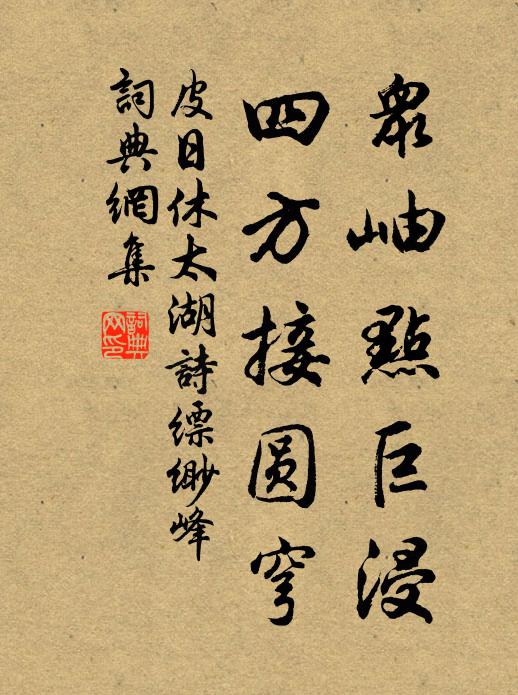 眾岫點巨浸
四方接圆穹
皮日休太湖詩缥缈峰
詞典網集
詞典网印